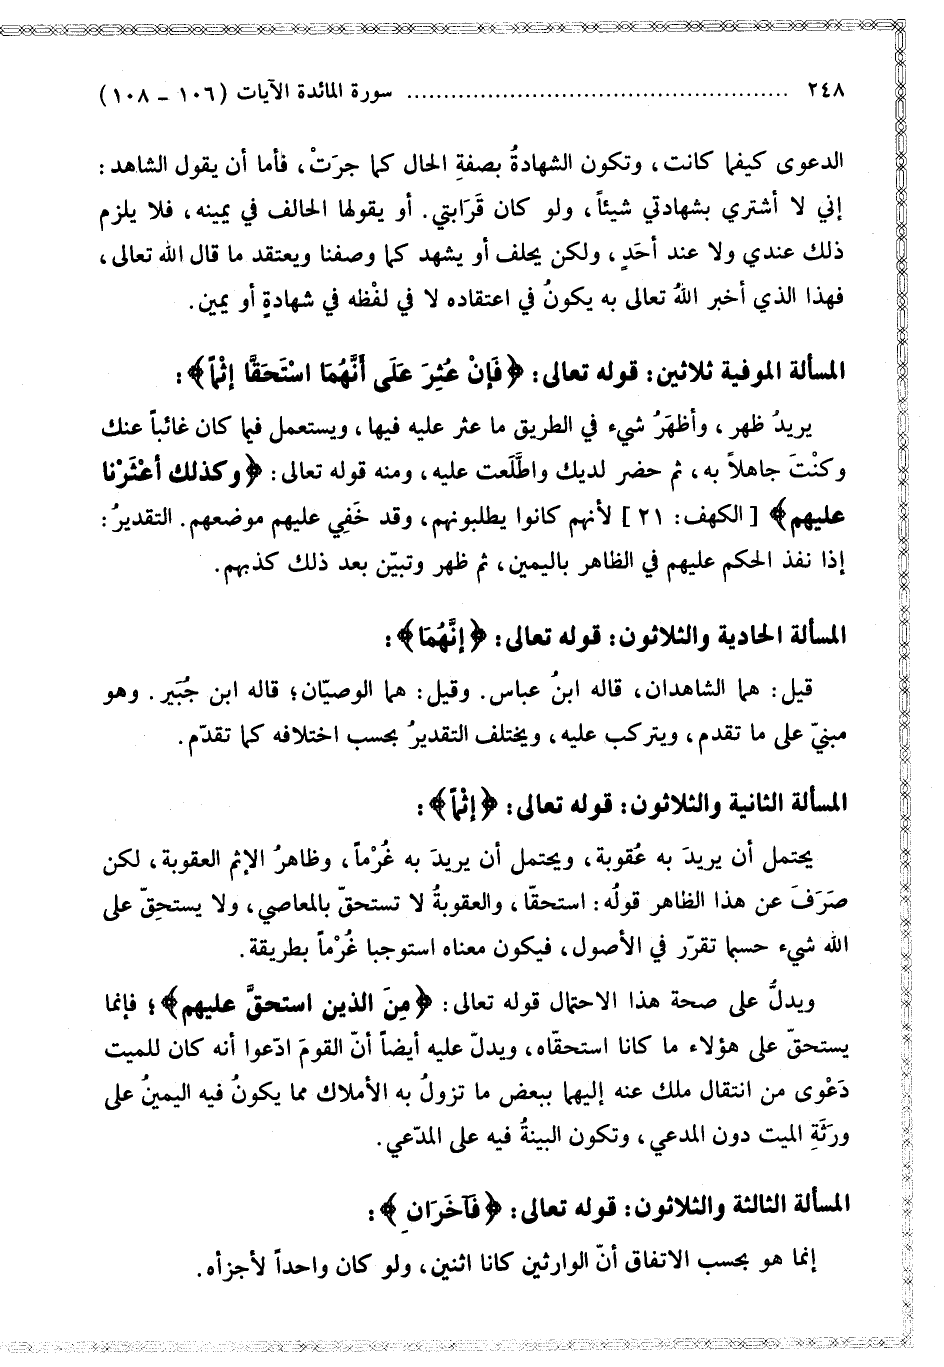 ٢٤٨ ..................................................... سورة المائدة الآيات (١٠٦ - ١٠٨)
الدعوى كيفما كانت، وتكون الشهادةُ بصفةِ الحال كما جرَتْ، فأما أن يقول الشاهد:
إني لا أشتري بشهادتي شيئاً، ولو كان قَرَابتي. أو يقولها الحالف في يمينه، فلا يلزم
ذلك عندي ولا عند أحَدٍ، ولكن يحلف أو يشهد كما وصفنا ويعتقد ما قال الله تعالى،
فهذا الذي أخبر اللهُ تعالى به يكونُ في اعتقاده لا في لفْظه في شهادةٍ أو يمين.
المسألة الموفية ثلاثين: قوله تعالى: ﴿فَإنْ عُثِرَ عَلَى أَنَّهُمَا اسْتَحَقَّا إثْماً﴾:
يريدُ ظهر، وأظهَرُ شيء في الطريق ما عثر عليه فيها، ويستعمل فيما كان غائباً عنك
وكنْتَ جاهلاً به، ثم حضر لديك واطَّلَعت عليه، ومنه قوله تعالى: ﴿وكذلك أعْثَرْنا
عليهم﴾ [الكهف: ٢١] لأنهم كانوا يطلبونهم، وقد خَفِي عليهم موضعهم. التقديرُ:
إذا نفذ الحكم عليهم في الظاهر باليمين، ثم ظهر وتبيّن بعد ذلك كذبهم.
المسألة الحادية والثلاثون: قوله تعالى: ﴿إنَّهُمَا﴾:
قيل: هما الشاهدان، قاله ابنُ عباس. وقيل: هما الوصيّان؛ قاله ابن جُبَير. وهو
مبنيّ على ما تقدم، ويتركب عليه، ويختلف التقديرُ بحسب اختلافه كما تقدّم.
المسألة الثانية والثلاثون: قوله تعالى: ﴿إثْماً﴾:
يحتمل أن يريدَ به عُقوبة، ويحتمل أن يريدَ به غُرْماً، وظاهرُ الإثم العقوبة، لكن
صَرَفَ عن هذا الظاهر قولُه: استحقّا، والعقوبةُ لا تستحقّ بالمعاصي، ولا يستحِقّ على
الله شيء حسبما تقرّر في الأصول، فيكون معناه استوجبا غُرْماً بطريقة.
ويدلُّ على صحة هذا الاحتمال قوله تعالى: ﴿مِنَ الذين استحقَّ عليهم﴾؛ فإنما
يستحقّ على هؤلاء ما كانا استحقّاه، ويدلّ عليه أيضاً أنّ القومَ ادّعوا أنه كان للميت
دَعْوى من انتقال ملك عنه إليهما ببعض ما تزولُ به الأملاك مما يكونُ فيه اليمينُ على
ورثَةِ الميت دون المدعي، وتكون البينةُ فيه على المدّعي.
المسألة الثالثة والثلاثون: قوله تعالى: ﴿فَآخَرَانِ﴾:
إنما هو بحسب الاتفاق أنّ الوارثين كانا اثنين، ولو كان واحداً لأجزأه.